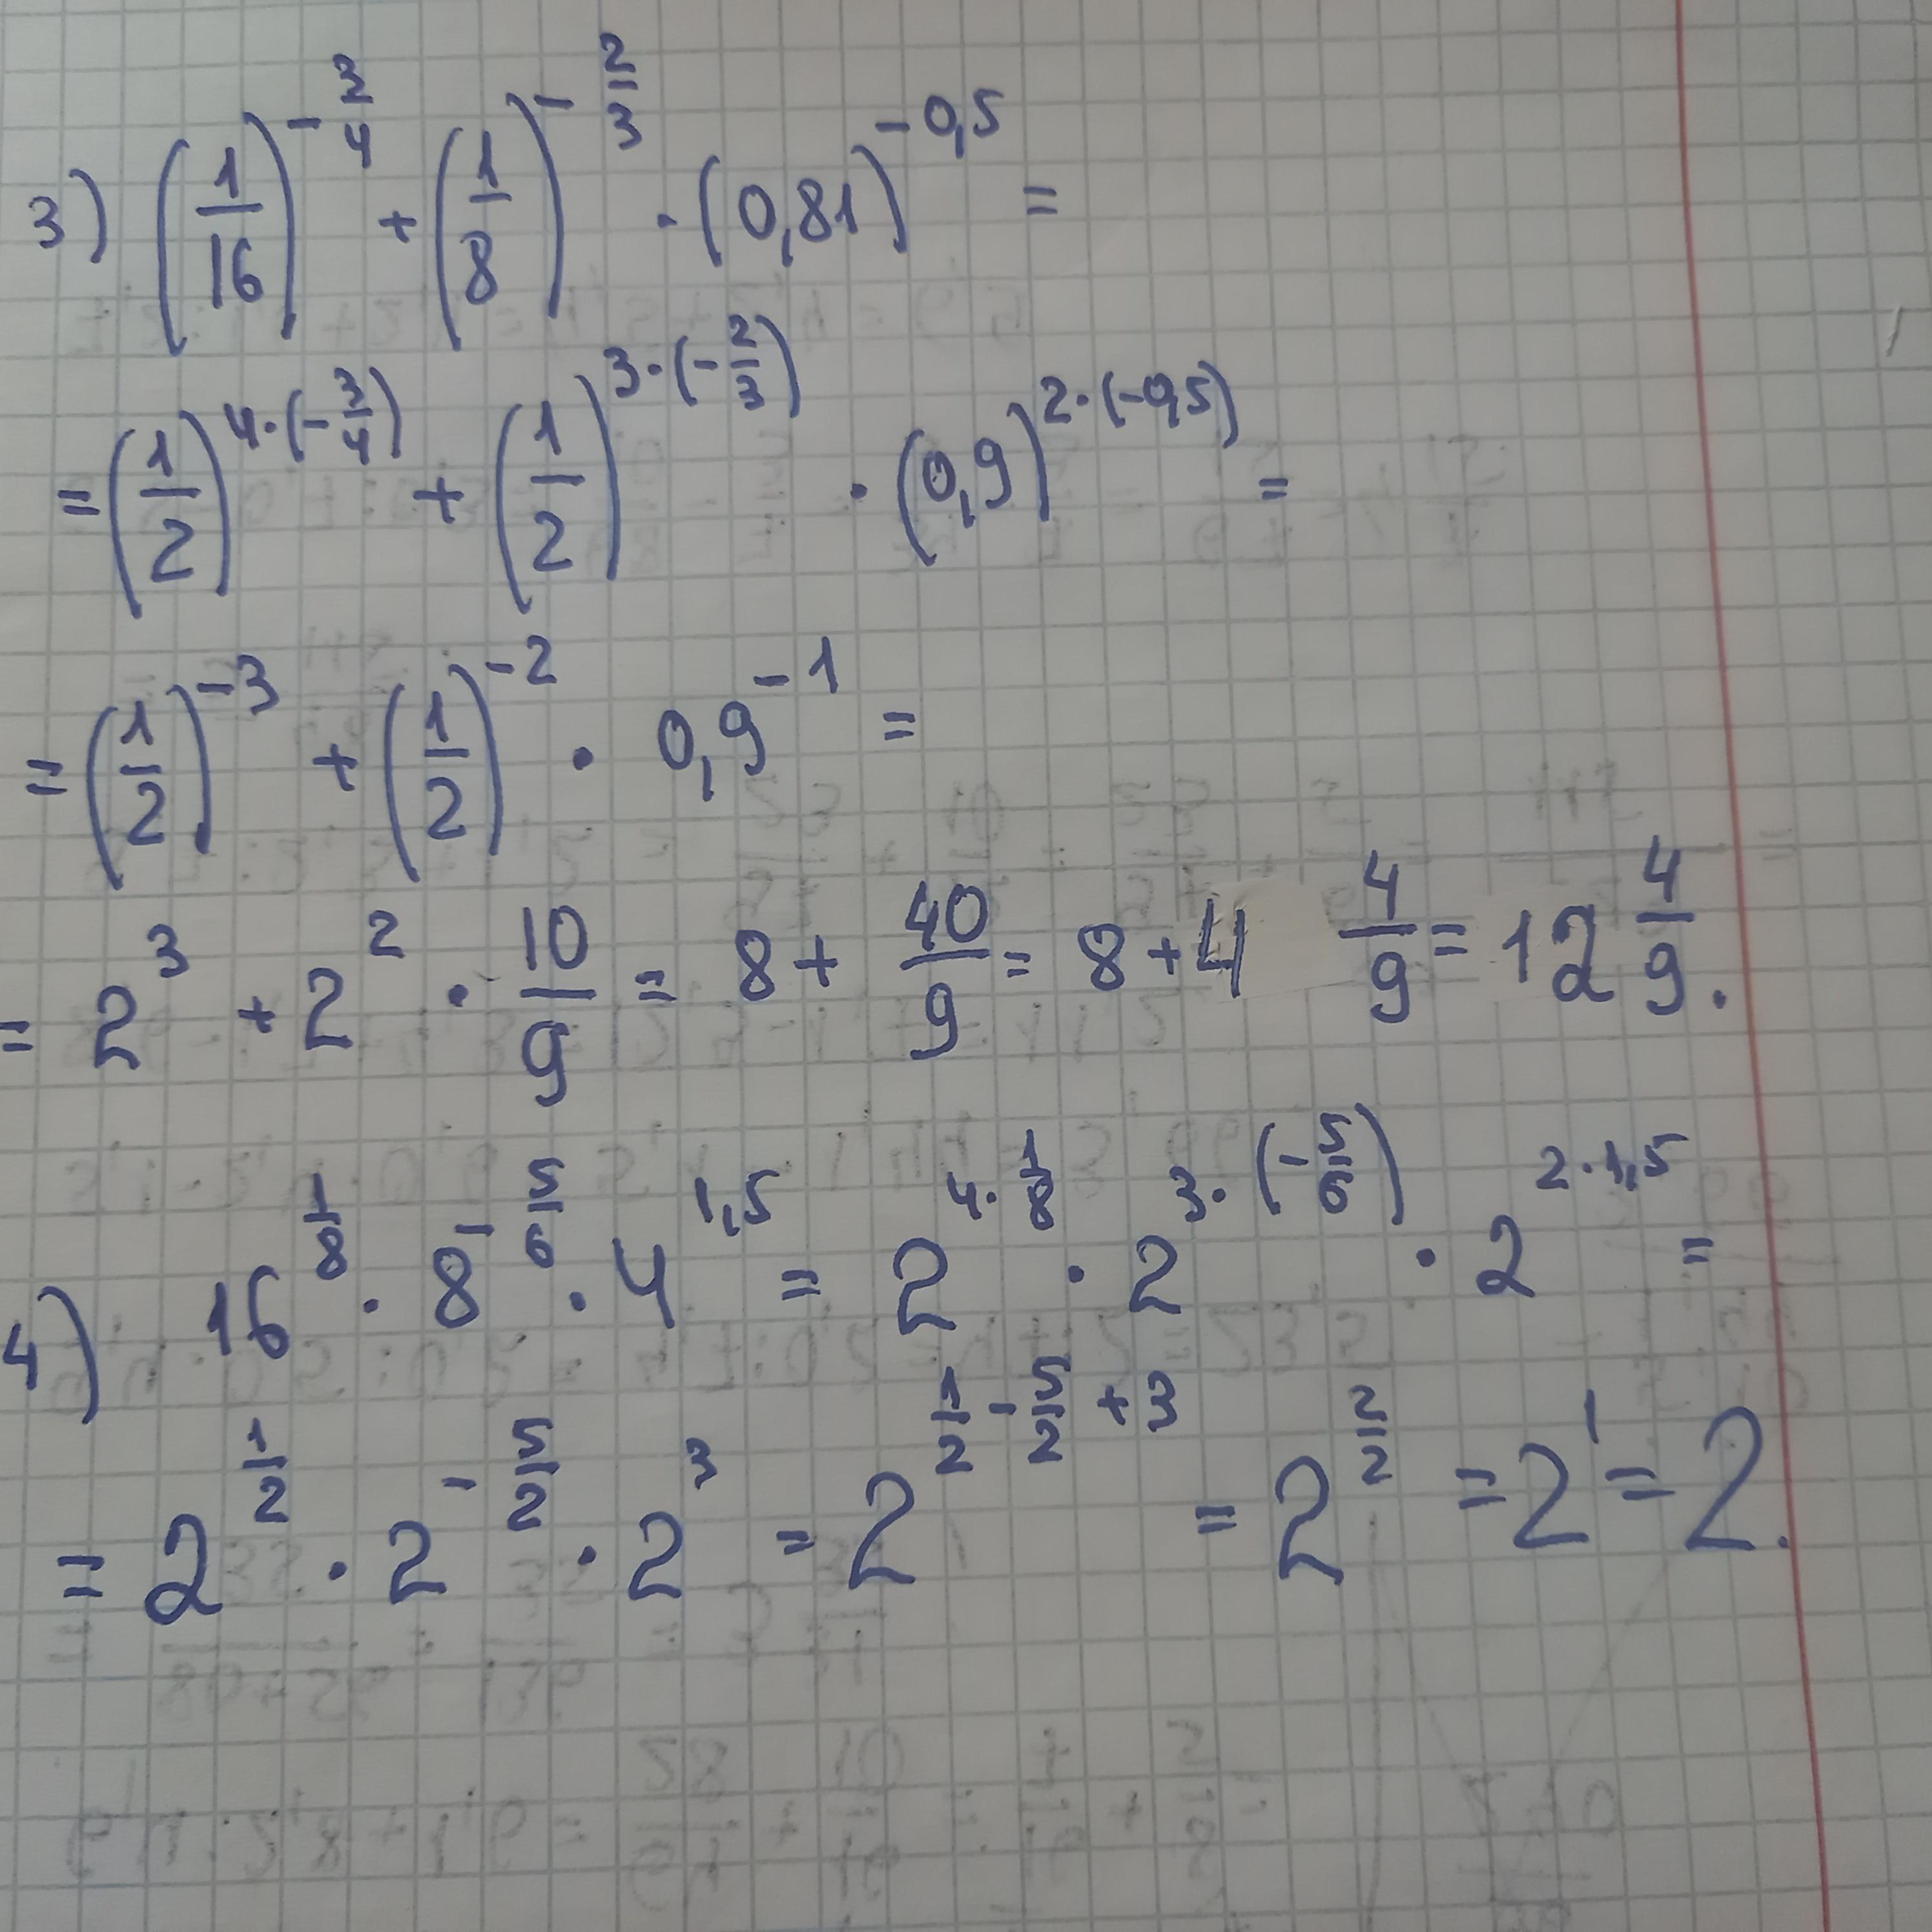 3) (1/16)^(-3/4) + (1/8)^(-2/3) · (0,81)^(-0,5) =
= (1/2)^(4·(-3/4)) + (1/2)^(3·(-2/3)) · (0,9)^(2·(-0,5)) =
= (1/2)^(-3) + (1/2)^(-2) · 0,9^(-1) =
= 2^3 + 2^2 · 10/9 = 8 + 40/9 = 8 + 4 4/9 = 12 4/9.
4) 16^(1/8) · 8^(-5/6) · 4^(1,5) = 2^(4·1/8) · 2^(3·(-5/6)) · 2^(2·1,5) =
= 2^(1/2) · 2^(-5/2) · 2^3 = 2^(1/2 - 5/2 + 3) = 2^(2/2) = 2^1 = 2.